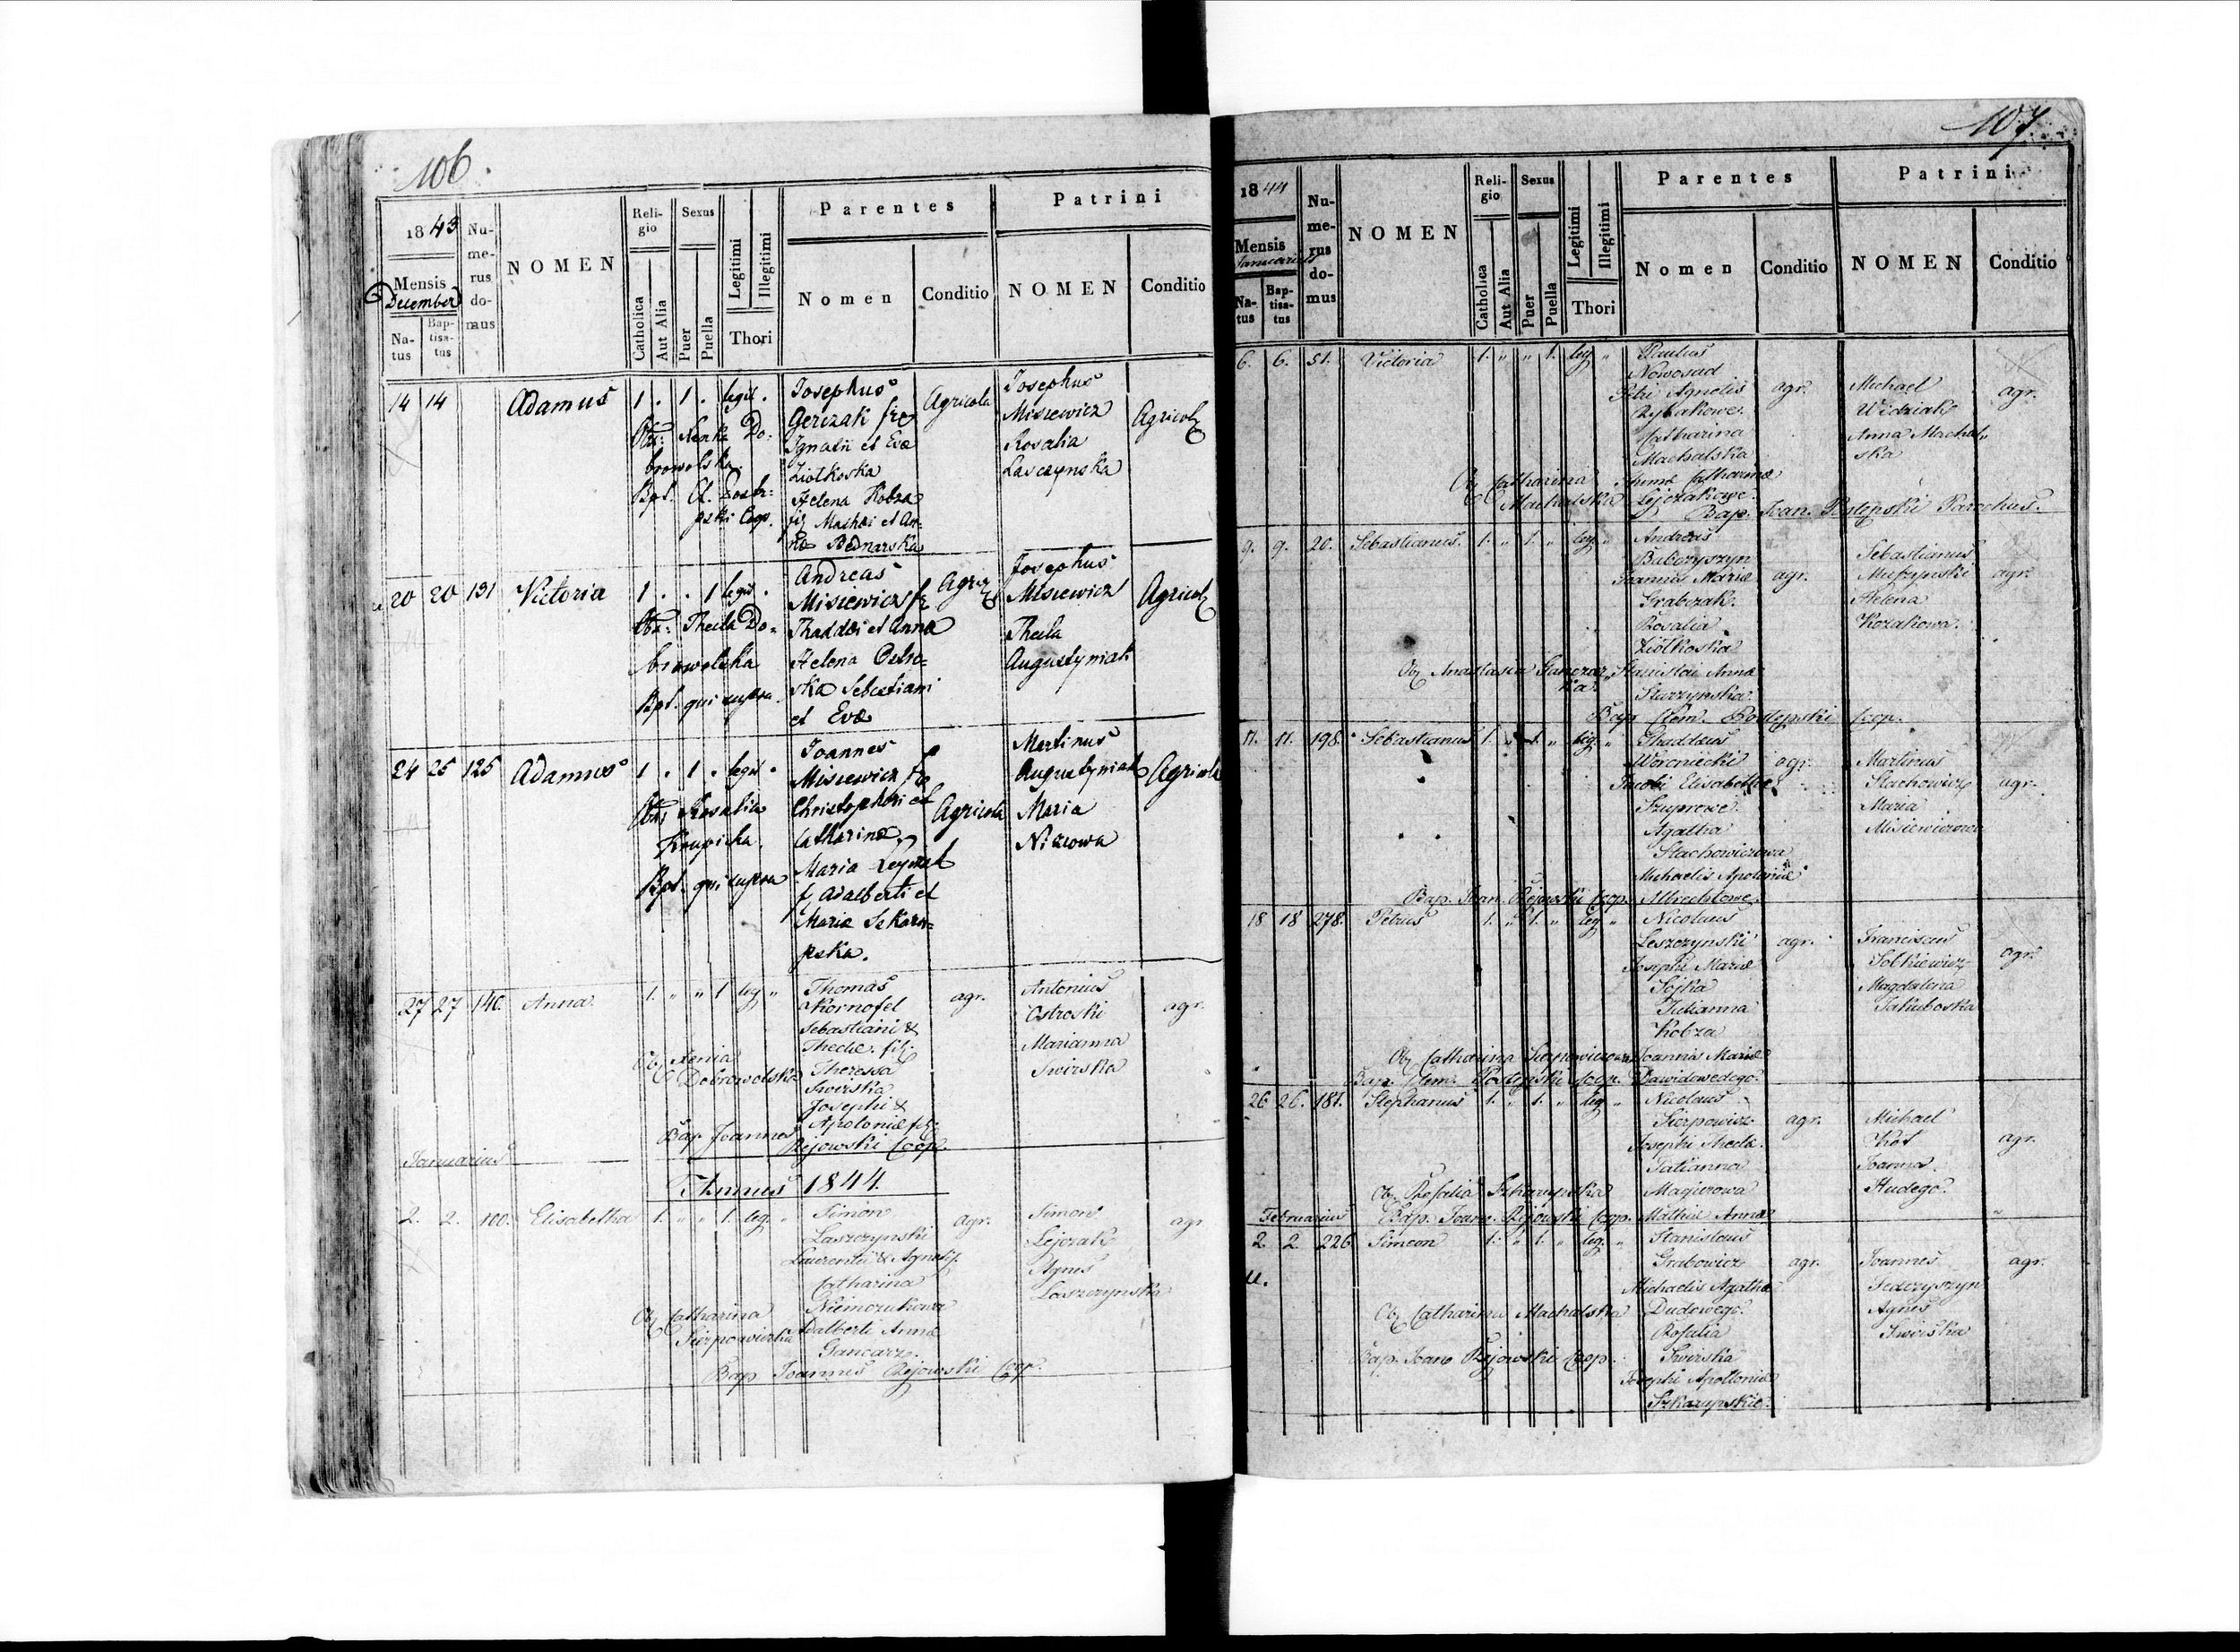 106.
1843
Mensis
December
Natus
Baptisatus
Numerus domus
NOMEN
Religio
Catholica
Aut Alia
Sexus
Puer
Puella
Legitimi
Illegitimi
Thori
Parentes
Nomen
Conditio
Patrini
NOMEN
Conditio
14 14 Adamus 1 . 1 . legit .
Josephus
Gerczak
Ignatii et Eva
Ziolkoska
Helena Kobza
filia Mathei et An-
na Bednarska
Agricola
Josephus
Misiewicz
Rosalia
Lasczynska
Agricola
Obs: Xenia Do-
browolska
Bpt. Cl. Postę-
pski Coop.
20 20 131 Victoria 1 . . 1 legit .
Andreas
Misiewicz
Thaddei et Anna
Helena Ostro-
ska Sebastiani
et Eva
Josephus
Misiewicz
Thecla
Augustyniak
Agricola
Obs: Thecla Do-
browolska
Bpt. qui supra
24 25 125 Adamus 1 . 1 . legit .
Joannes
Misiewicz
Christophori et
Catharina
Maria Lejczak
f. Adalberti et
Maria Szkaru-
pska.
Agricola
Martinus
Augustyniak
Maria
Niziowa
Agricola
Obs: Rosalia
Krupicka
Bpt. qui supra
27 27 140. Anna 1. " " 1 leg "
Thomas
Kornofel
Sebastiani &
Theclæ fil.
Theressa
Swirska
Josephi &
Apoloniæ fil.
agr.
Antonius
Ostroski
Marianna
Swirska
agr.
Ob. Xenia
Dobrowolska
Bap. Joannes Rejowski Coop.
Januarius
Annus 1844.
2. 2. 100. Elisabetha 1. " " 1. leg. "
Simon
Laszczynski
Laurentii & Agnetis.
Catharina
Niemczukowa
Adalberti Annæ
Gancarz.
agr.
Simon
Lejczak
Agnes
Laszczynska
agr.
Ob. Catharina
Sierpowiczka
Bap. Joannes Rejowski Coop.
107
1844
Mensis
Januarius
Natus
Baptisatus
Numerus domus
NOMEN
Religio
Catholica
Aut Alia
Sexus
Puer
Puella
Legitimi
Illegitimi
Thori
Parentes
Nomen
Conditio
Patrini
NOMEN
Conditio
6. 6. 51. Victoria 1. " " 1. leg "
Paulus
Nowosad
Petri Agnetis
Rybakowe.
Catharina
Machalska
Catharinæ
Lejczakowe.
agr.
Michael
Widziak
Anna Machal-
ska
agr.
Ob. Catharina
Machalska
Bap. Joan. Postępski Parochus.
9. 9. 20. Sebastianus. 1. " 1. " leg. "
Andreas
Babczyszyn
Joannis Mariæ
Grabczak.
Rosalia
Ziolkoska
Stanislai Annæ
Starzynska.
agr.
Sebastianus
Muszynski
Helena
Kozakowa.
agr.
Ob. Anastasia Gancarz-
ka.
Bap. Clem. Postępski Coop.
11. 11. 198. Sebastianus 1. " 1. " leg. "
Thaddeus
Woroniecki
Jacobi Elisabethæ
Szuprowe.
Agatha
Stachowiczowa
Michaelis Apoloniæ
Albrechtowe.
agr.
Martinus
Stachowicz
Maria
Misiewiczowa
agr.
Bap. Joan. Rejowski Coop.
18 18 278. Petrus 1. " 1. " leg "
Nicolaus
Leszczynski
Josephi Mariæ
Sojka
Julianna
Kobza
Joannis Mariæ
Dawidowedego.
agr.
Franciscus
Solkiewicz
Magdalena
Jakuboska
agr.
Ob. Catharina Sierpowiczowa
Bap. Clem. Postępski Coop.
26 26. 187. Stephanus 1. " 1. " leg "
Nicolaus
Sierpowicz
Josephi Thecla.
Tatianna
Magierowa
Mathiæ Annæ
agr.
Michael
Kot
Joanna
Hudego.
agr.
Ob. Rosalia Szkarupska
Bap. Joan. Rejowski Coop.
Februarius
2. 2. 226 Simeon 1. " 1. " leg. "
Stanislaus
Grabowicz
Michaelis Agathæ
Dudowego.
Rosalia
Swirska
Josephi Apolloniæ
Szkarupskie.
agr.
Joannes
Fedczyszyn
Agnes
Swirska
agr.
Ob. Catharina Machalska
Bap. Joan. Rejowski Coop.